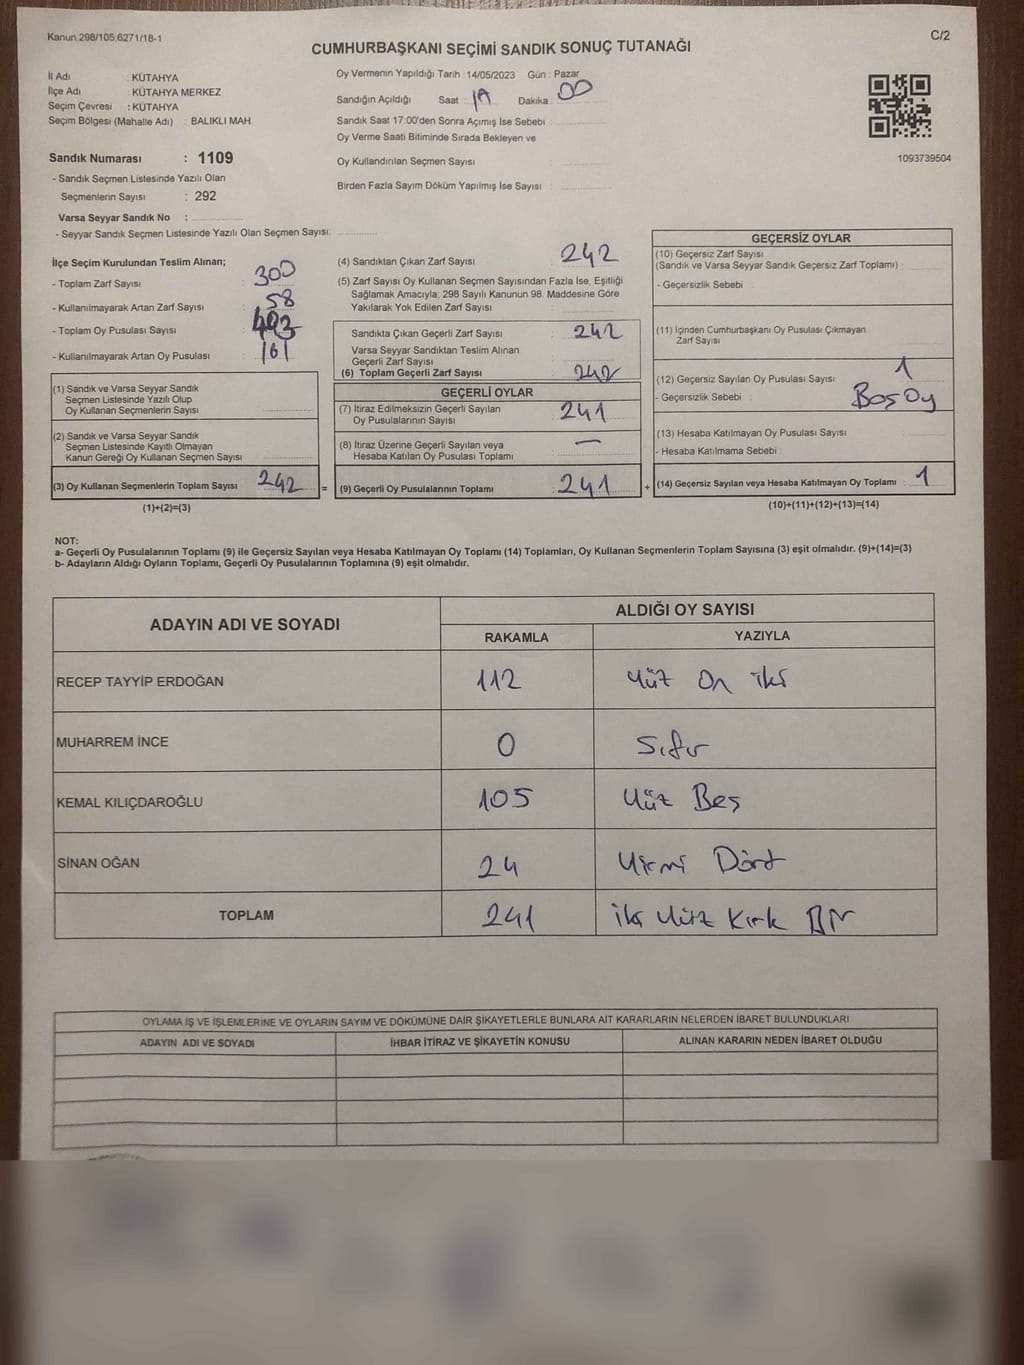 Kanun 298/105,6271/18-1
C/2
CUMHURBAŞKANI SEÇİMİ SANDIK SONUÇ TUTANAĞI
İl Adı : KÜTAHYA
İlçe Adı : KÜTAHYA MERKEZ
Seçim Çevresi : KÜTAHYA
Seçim Bölgesi (Mahalle Adı) : BALIKLI MAH.
Oy Vermenin Yapıldığı Tarih :14/05/2023 Gün : Pazar
Sandığın Açıldığı Saat : Dakika : 00
Sandık Saat 17:00'den Sonra Açımış İse Sebebi :
Oy Verme Saati Bitiminde Sırada Bekleyen ve
Oy Kullandırılan Seçmen Sayısı :
Birden Fazla Sayım Döküm Yapılmış İse Sayısı :
1093739504
Sandık Numarası : 1109
- Sandık Seçmen Listesinde Yazılı Olan
Seçmenlerin Sayısı : 292
Varsa Seyyar Sandık No :
- Seyyar Sandık Seçmen Listesinde Yazılı Olan Seçmen Sayısı:
İlçe Seçim Kurulundan Teslim Alınan;
- Toplam Zarf Sayısı : 300
- Kullanılmayarak Artan Zarf Sayısı : 58
- Toplam Oy Pusulası Sayısı :
- Kullanılmayarak Artan Oy Pusulası : 161
(1) Sandık ve Varsa Seyyar Sandık
Seçmen Listesinde Yazılı Olup
Oy Kullanan Seçmenlerin Sayısı
(2) Sandık ve Varsa Seyyar Sandık
Seçmen Listesinde Kayıtlı Olmayan
Kanun Gereği Oy Kullanan Seçmen Sayısı
(3) Oy Kullanan Seçmenlerin Toplam Sayısı : 242 =
(1)+(2)=(3)
(4) Sandıktan Çıkan Zarf Sayısı : 242
(5) Zarf Sayısı Oy Kullanan Seçmen Sayısından Fazla İse, Eşitliği
Sağlamak Amacıyla; 298 Sayılı Kanunun 98. Maddesine Göre
Yakılarak Yok Edilen Zarf Sayısı :
Sandıkta Çıkan Geçerli Zarf Sayısı : 242
Varsa Seyyar Sandıktan Teslim Alınan
Geçerli Zarf Sayısı :
(6) Toplam Geçerli Zarf Sayısı : 242
GEÇERLİ OYLAR
(7) İtiraz Edilmeksizin Geçerli Sayılan
Oy Pusulalarının Sayısı : 241
(8) İtiraz Üzerine Geçerli Sayılan veya
Hesaba Katılan Oy Pusulası Toplamı : —
(9) Geçerli Oy Pusulalarının Toplamı : 241 +
GEÇERSİZ OYLAR
(10) Geçersiz Zarf Sayısı
(Sandık ve Varsa Seyyar Sandık Geçersiz Zarf Toplamı) :
- Geçersizlik Sebebi :
(11) İçinden Cumhurbaşkanı Oy Pusulası Çıkmayan
Zarf Sayısı :
(12) Geçersiz Sayılan Oy Pusulası Sayısı : 1
- Geçersizlik Sebebi : Boş Oy
(13) Hesaba Katılmayan Oy Pusulası Sayısı :
- Hesaba Katılmama Sebebi :
(14) Geçersiz Sayılan veya Hesaba Katılmayan Oy Toplamı : 1
(10)+(11)+(12)+(13)=(14)
NOT:
a- Geçerli Oy Pusulalarının Toplamı (9) ile Geçersiz Sayılan veya Hesaba Katılmayan Oy Toplamı (14) Toplamları, Oy Kullanan Seçmenlerin Toplam Sayısına (3) eşit olmalıdır. (9)+(14)=(3)
b- Adayların Aldığı Oyların Toplamı, Geçerli Oy Pusulalarının Toplamına (9) eşit olmalıdır.
ADAYIN ADI VE SOYADI
ALDIĞI OY SAYISI
RAKAMLA YAZIYLA
RECEP TAYYİP ERDOĞAN 112 Yüz On iki
MUHARREM İNCE 0 Sıfır
KEMAL KILIÇDAROĞLU 105 Yüz Beş
SİNAN OĞAN 24 Yirmi Dört
TOPLAM 241 iki Yüz Kırk Bir
OYLAMA İŞ VE İŞLEMLERİNE VE OYLARIN SAYIM VE DÖKÜMÜNE DAİR ŞİKAYETLERLE BUNLARA AİT KARARLARIN NELERDEN İBARET BULUNDUKLARI
ADAYIN ADI VE SOYADI İHBAR İTİRAZ VE ŞİKAYETİN KONUSU ALINAN KARARIN NEDEN İBARET OLDUĞU